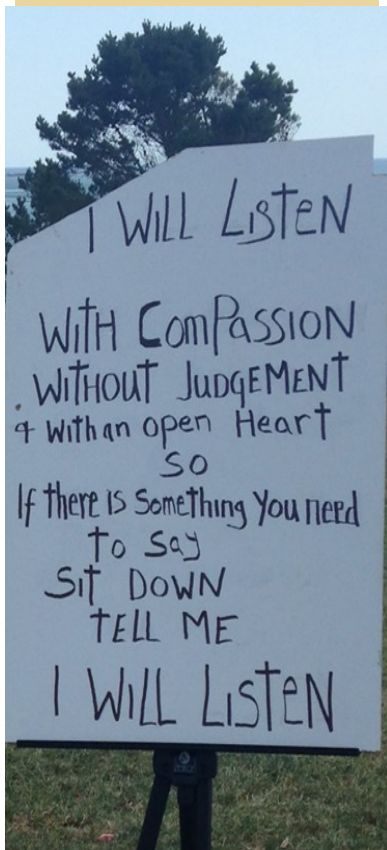 I WILL LISteN
WitH ComPASSION
WITHOUT JUDGEMENT
& with an open Heart
SO
If there IS Something You need
to Say
Sit DOWN
TELL ME
I WILL LISteN